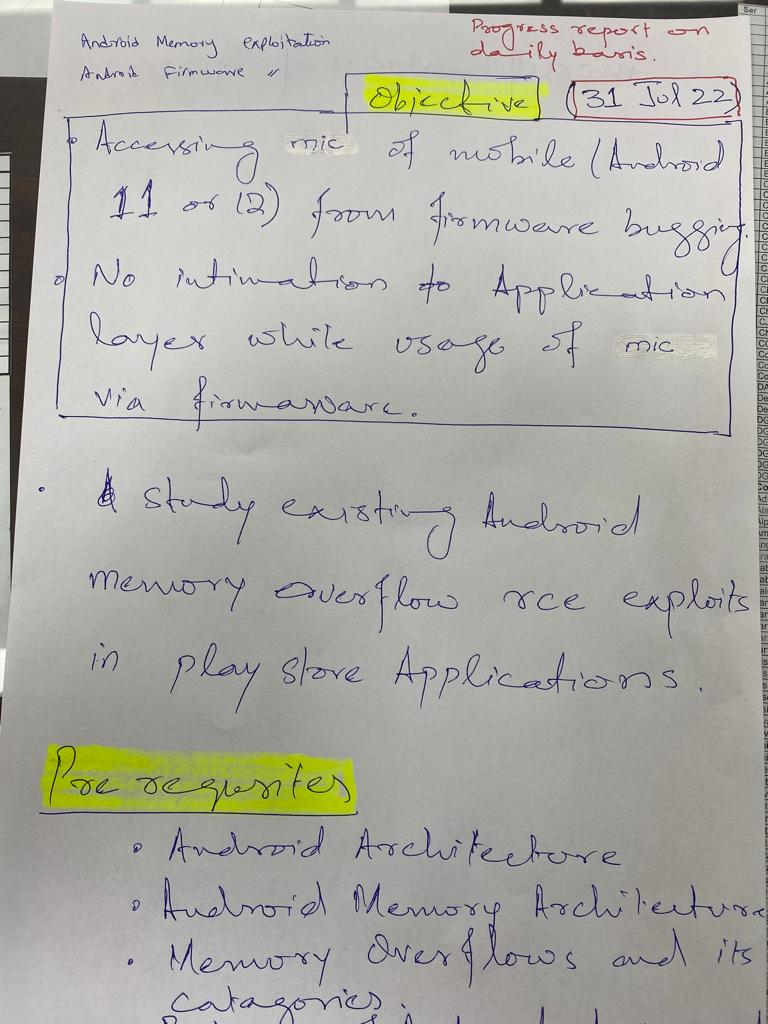 Progress report on
daily basis.
Android Memory exploitation
Android Firmware "
Objective (31 Jul 22)
• Accessing mic of mobile (Android
11 or 12) from firmware bugging.
• No intimation to Application
layer while usage of mic
via firmaware.
• study existing Android
memory overflow rce exploits
in play store Applications.
Pre requsites
• Android Architecture
• Android Memory Architecture
• Memory Overflows and its
catagories.